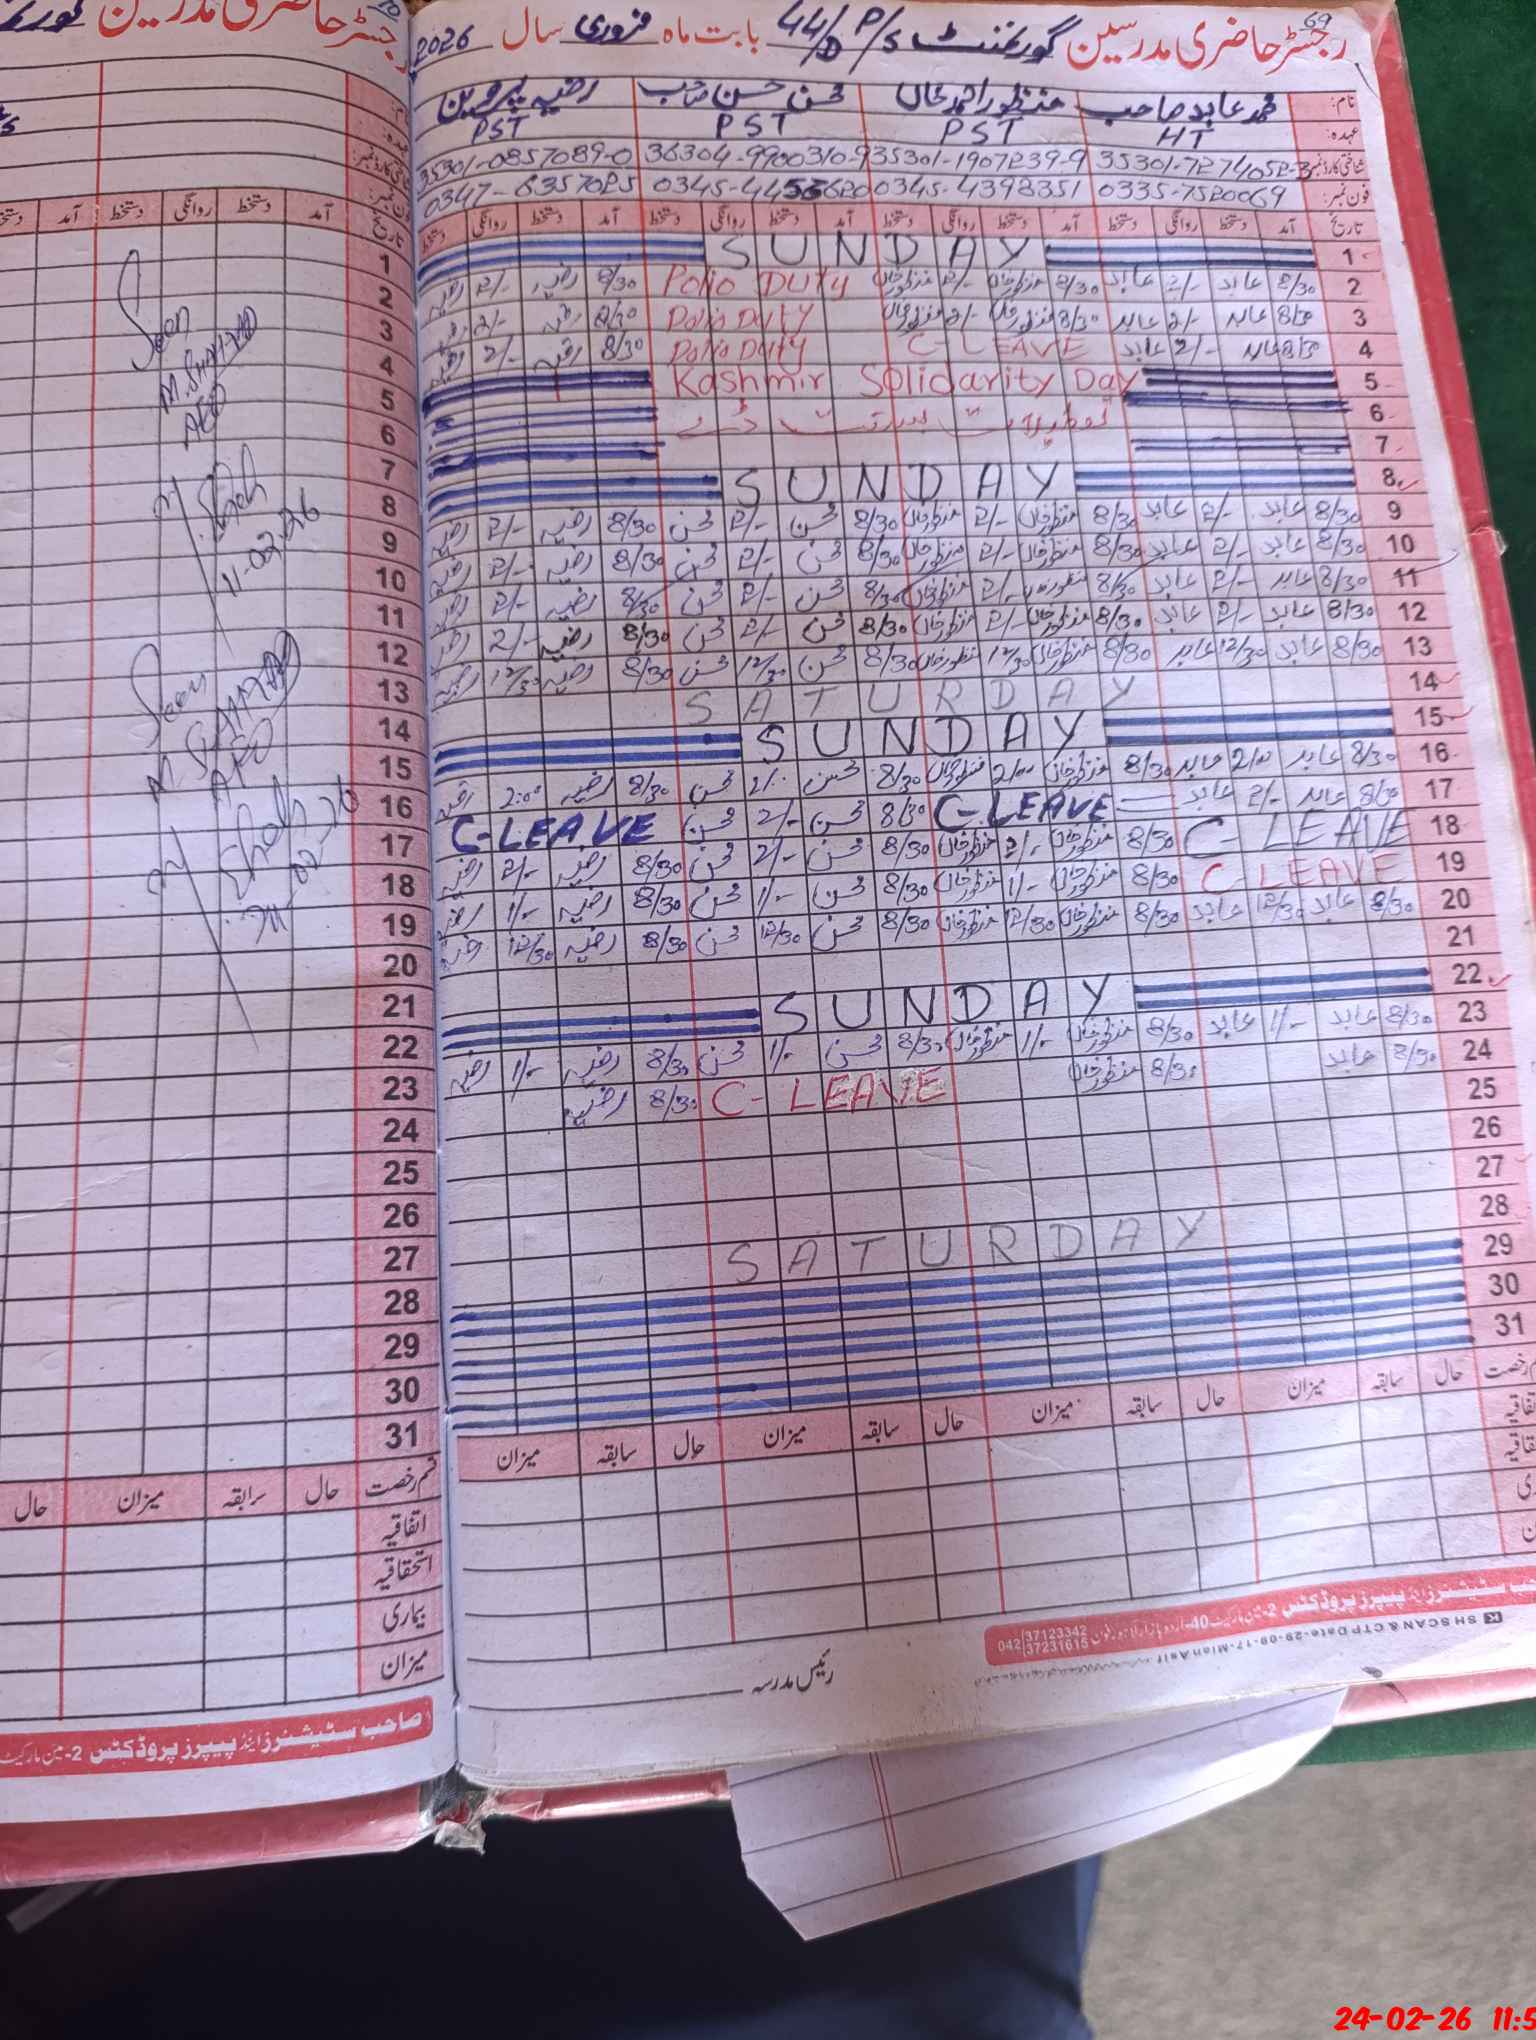 رجسٹر حاضری مدرسین گورنمنٹ P/S 44/D بابت ماہ فروری سال 2026
69
نام: محمد عابد صاحب منظور احمد خان محسن حسن صاحب رضیہ پروین
عہدہ: HT PST PST PST
شناختی کارڈ نمبر: 35301-1907239-9 36304-9900310-9 35301-0857089-0
فون نمبر: 0335-7520069 0345-4398351 0347-6357025
تاریخ آمد دستخط روانگی دستخط آمد دستخط روانگی دستخط آمد دستخط روانگی دستخط آمد دستخط روانگی دستخط
1 SUNDAY
2 8/30 عابد 2/- عابد 8/30 منظور خان 2/- منظور خان Polio Duty 8/30 رضیہ 2/- رضیہ
3 8/30 عابد 2/- عابد 8/30 منظور خان 2/- منظور خان Polio Duty 8/30 رضیہ 2/- رضیہ
4 8/30 عابد 2/- عابد C-LEAVE Polio Duty 8/30 رضیہ 2/- رضیہ
5 Kashmir Solidarity Day
6 تعطیلات بسنت
7
8 SUNDAY
9 8/30 عابد 2/- عابد 8/30 منظور خان 2/- منظور خان 8/30 محسن 2/- محسن 8/30 رضیہ 2/- رضیہ
10 8/30 عابد 2/- عابد 8/30 منظور خان 2/- منظور خان 8/30 محسن 2/- محسن 8/30 رضیہ 2/- رضیہ
11 8/30 عابد 2/- عابد 8/30 منظور خان 2/- منظور خان 8/30 محسن 2/- محسن 8/30 رضیہ 2/- رضیہ
12 8/30 عابد 2/- عابد 8/30 منظور خان 2/- منظور خان 8/30 محسن 2/- محسن 8/30 رضیہ 2/- رضیہ
13 8/30 عابد 12/30 عابد 8/30 منظور خان 12/30 منظور خان 8/30 محسن 12/30 محسن 8/30 رضیہ 12/30 رضیہ
14 SATURDAY
15 SUNDAY
16 8/30 عابد 2/00 عابد 8/30 منظور خان 2/00 منظور خان 8/30 محسن 2/: محسن 8/30 رضیہ 2:00 رضیہ
17 8/30 عابد 2/- عابد C-LEAVE 8/30 محسن 2/- محسن C-LEAVE
18 C-LEAVE 8/30 منظور خان 2/- منظور خان 8/30 محسن 2/- محسن 8/30 رضیہ 2/- رضیہ
19 C-LEAVE 8/30 منظور خان 1/- منظور خان 8/30 محسن 1/- محسن 8/30 رضیہ 1/- رضیہ
20 8/30 عابد 12/30 عابد 8/30 منظور خان 12/30 منظور خان 8/30 محسن 12/30 محسن 8/30 رضیہ 12/30 رضیہ
21
22 SUNDAY
23 8/30 عابد 1/- عابد 8/30 منظور خان 1/- منظور خان 8/30 محسن 1/- محسن 8/30 رضیہ 1/- رضیہ
24 8/30 عابد 8/30 منظور خان C-LEAVE 8/30 رضیہ
25
26
27
28 SATURDAY
29
30
31
حال سابقہ میزان حال سابقہ میزان حال سابقہ میزان حال سابقہ میزان
رئیس مدرسہ
042 37123342
37231615
KSH SCAN & CTP Date-29-09-17-Mian Asif
رجسٹر حاضری مدرسین
70
تاریخ آمد دستخط روانگی دستخط آمد دستخط
1
2
3
4
5
6
7
8
9
10
11
12
13
14
15
16
17
18
19
20
21
22
23
24
25
26
27
28
29
30
31
Seen
M. SHAHZAD
AEO
11-02-26
Seen
M. SHAHZAD
AEO
قسم رخصت حال سابقہ میزان حال
اتفاقیہ
استحقاقیہ
بیماری
میزان
صاحب سٹیشنرز اینڈ پیپرز پروڈکٹس 2-مین مارکیٹ
24-02-26 11:5